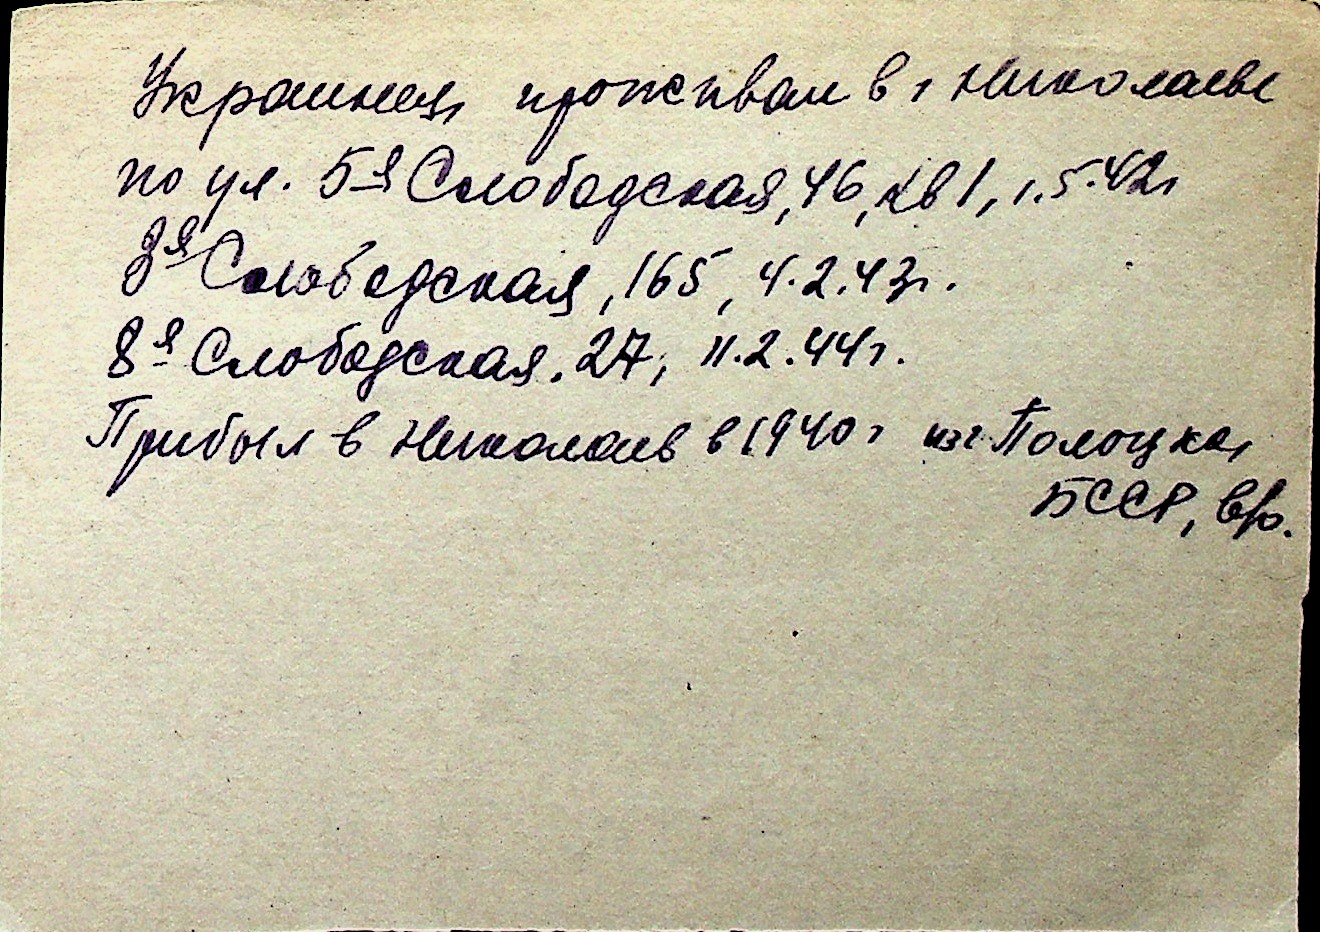 Украинец, проживал в г Николаеве
по ул. 5-я Слободская, 46, кв 1, 1.5.42г
8-я Слободская, 165, 4.2.43г.
8-я Слободская. 27, 11.2.44г.
Прибыл в Николаев в 1940г из г. Полоцка,
БССР,